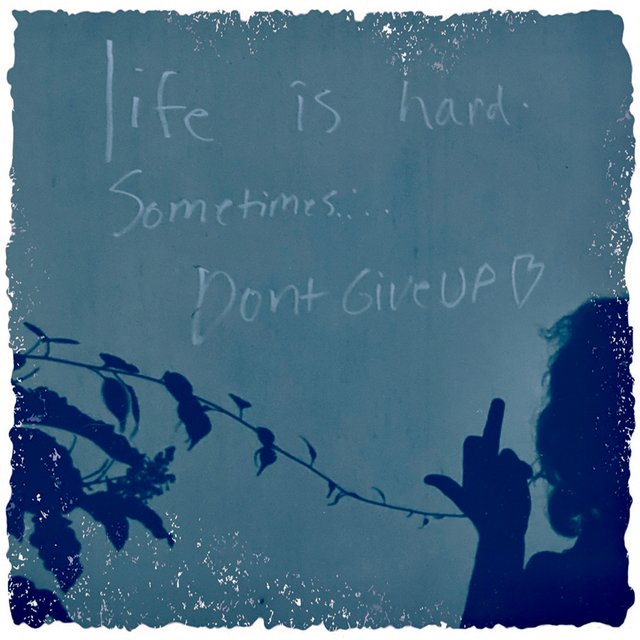 life is hard.
Sometimes....
Dont Give UP